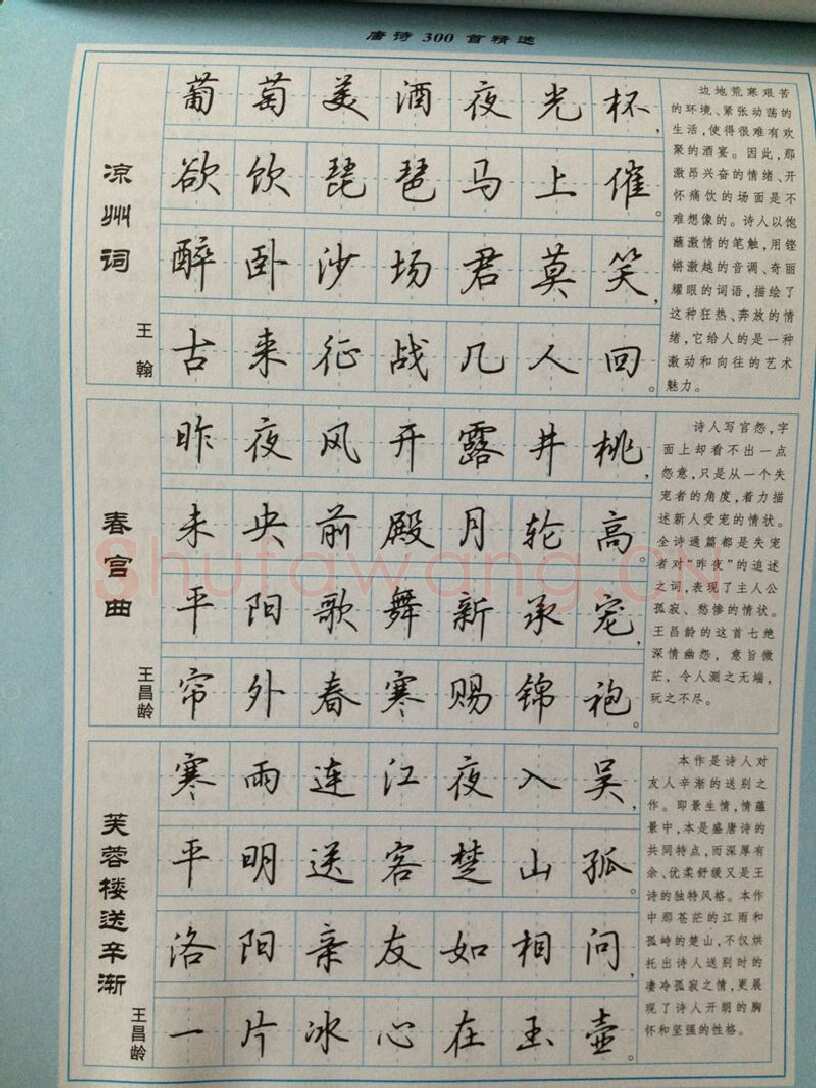 唐诗 300 首精选
凉州词
王翰
葡萄美酒夜光杯，
欲饮琵琶马上催。
醉卧沙场君莫笑，
古来征战几人回。
边地荒寒艰苦
的环境、紧张动荡的
生活，使得很难有欢
聚的酒宴。因此，那
激昂兴奋的情绪、开
怀痛饮的场面是不
难想像的。诗人以饱
蘸激情的笔触，用铿
锵激越的音调、奇丽
耀眼的词语，描绘了
这种狂热、奔放的情
绪，它给人的是一种
激动和向往的艺术
魅力。
春宫曲
王昌龄
昨夜风开露井桃，
未央前殿月轮高。
平阳歌舞新承宠，
帘外春寒赐锦袍。
诗人写宫怨，字
面上却看不出一点
怨意，只是从一个失
宠者的角度，着力描
述新人受宠的情状。
全诗通篇都是失宠
者对“昨夜”的追述
之词，表现了主人公
孤寂、愁惨的情状。
王昌龄的这首七绝
深情幽怨，意旨微
茫，令人测之无端，
玩之不尽。
芙蓉楼送辛渐
王昌龄
寒雨连江夜入吴，
平明送客楚山孤。
洛阳亲友如相问，
一片冰心在玉壶。
本作是诗人对
友人辛渐的送别之
作。即景生情，情蕴
景中，本是盛唐诗的
共同特点，而深厚有
余、优柔舒缓又是王
诗的独特风格。本作
中那苍茫的江雨和
孤峙的楚山，不仅烘
托出诗人送别时的
凄冷孤寂之情，更展
现了诗人开朗的胸
怀和坚强的性格。
Shufawang.cn